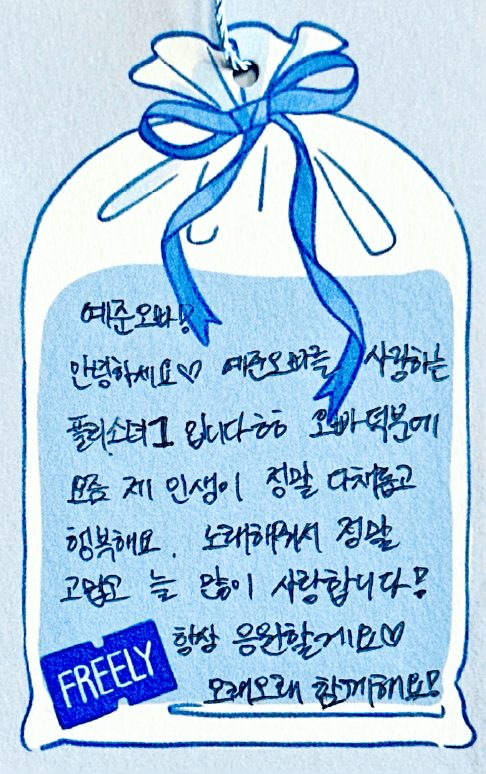 예준오빠!
안녕하세요♡ 예준오빠를 사랑하는
플리소녀1 입니다ㅎㅎ 오빠 덕분에
요즘 제 인생이 정말 다채롭고
행복해요. 노래해줘서 정말
고맙고 늘 많이 사랑합니다!
항상 응원할게요♡
오래오래 함께해요!
FREELY